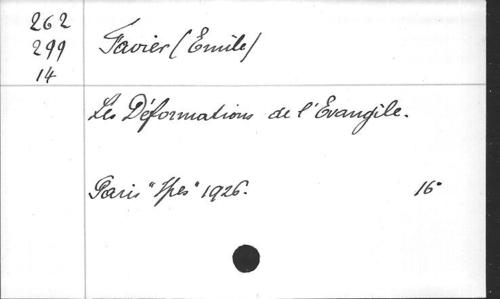 262
299
14
Favier (Emile)
Les Déformations de l'Evangile.
Paris "Spes" 1926. 16°